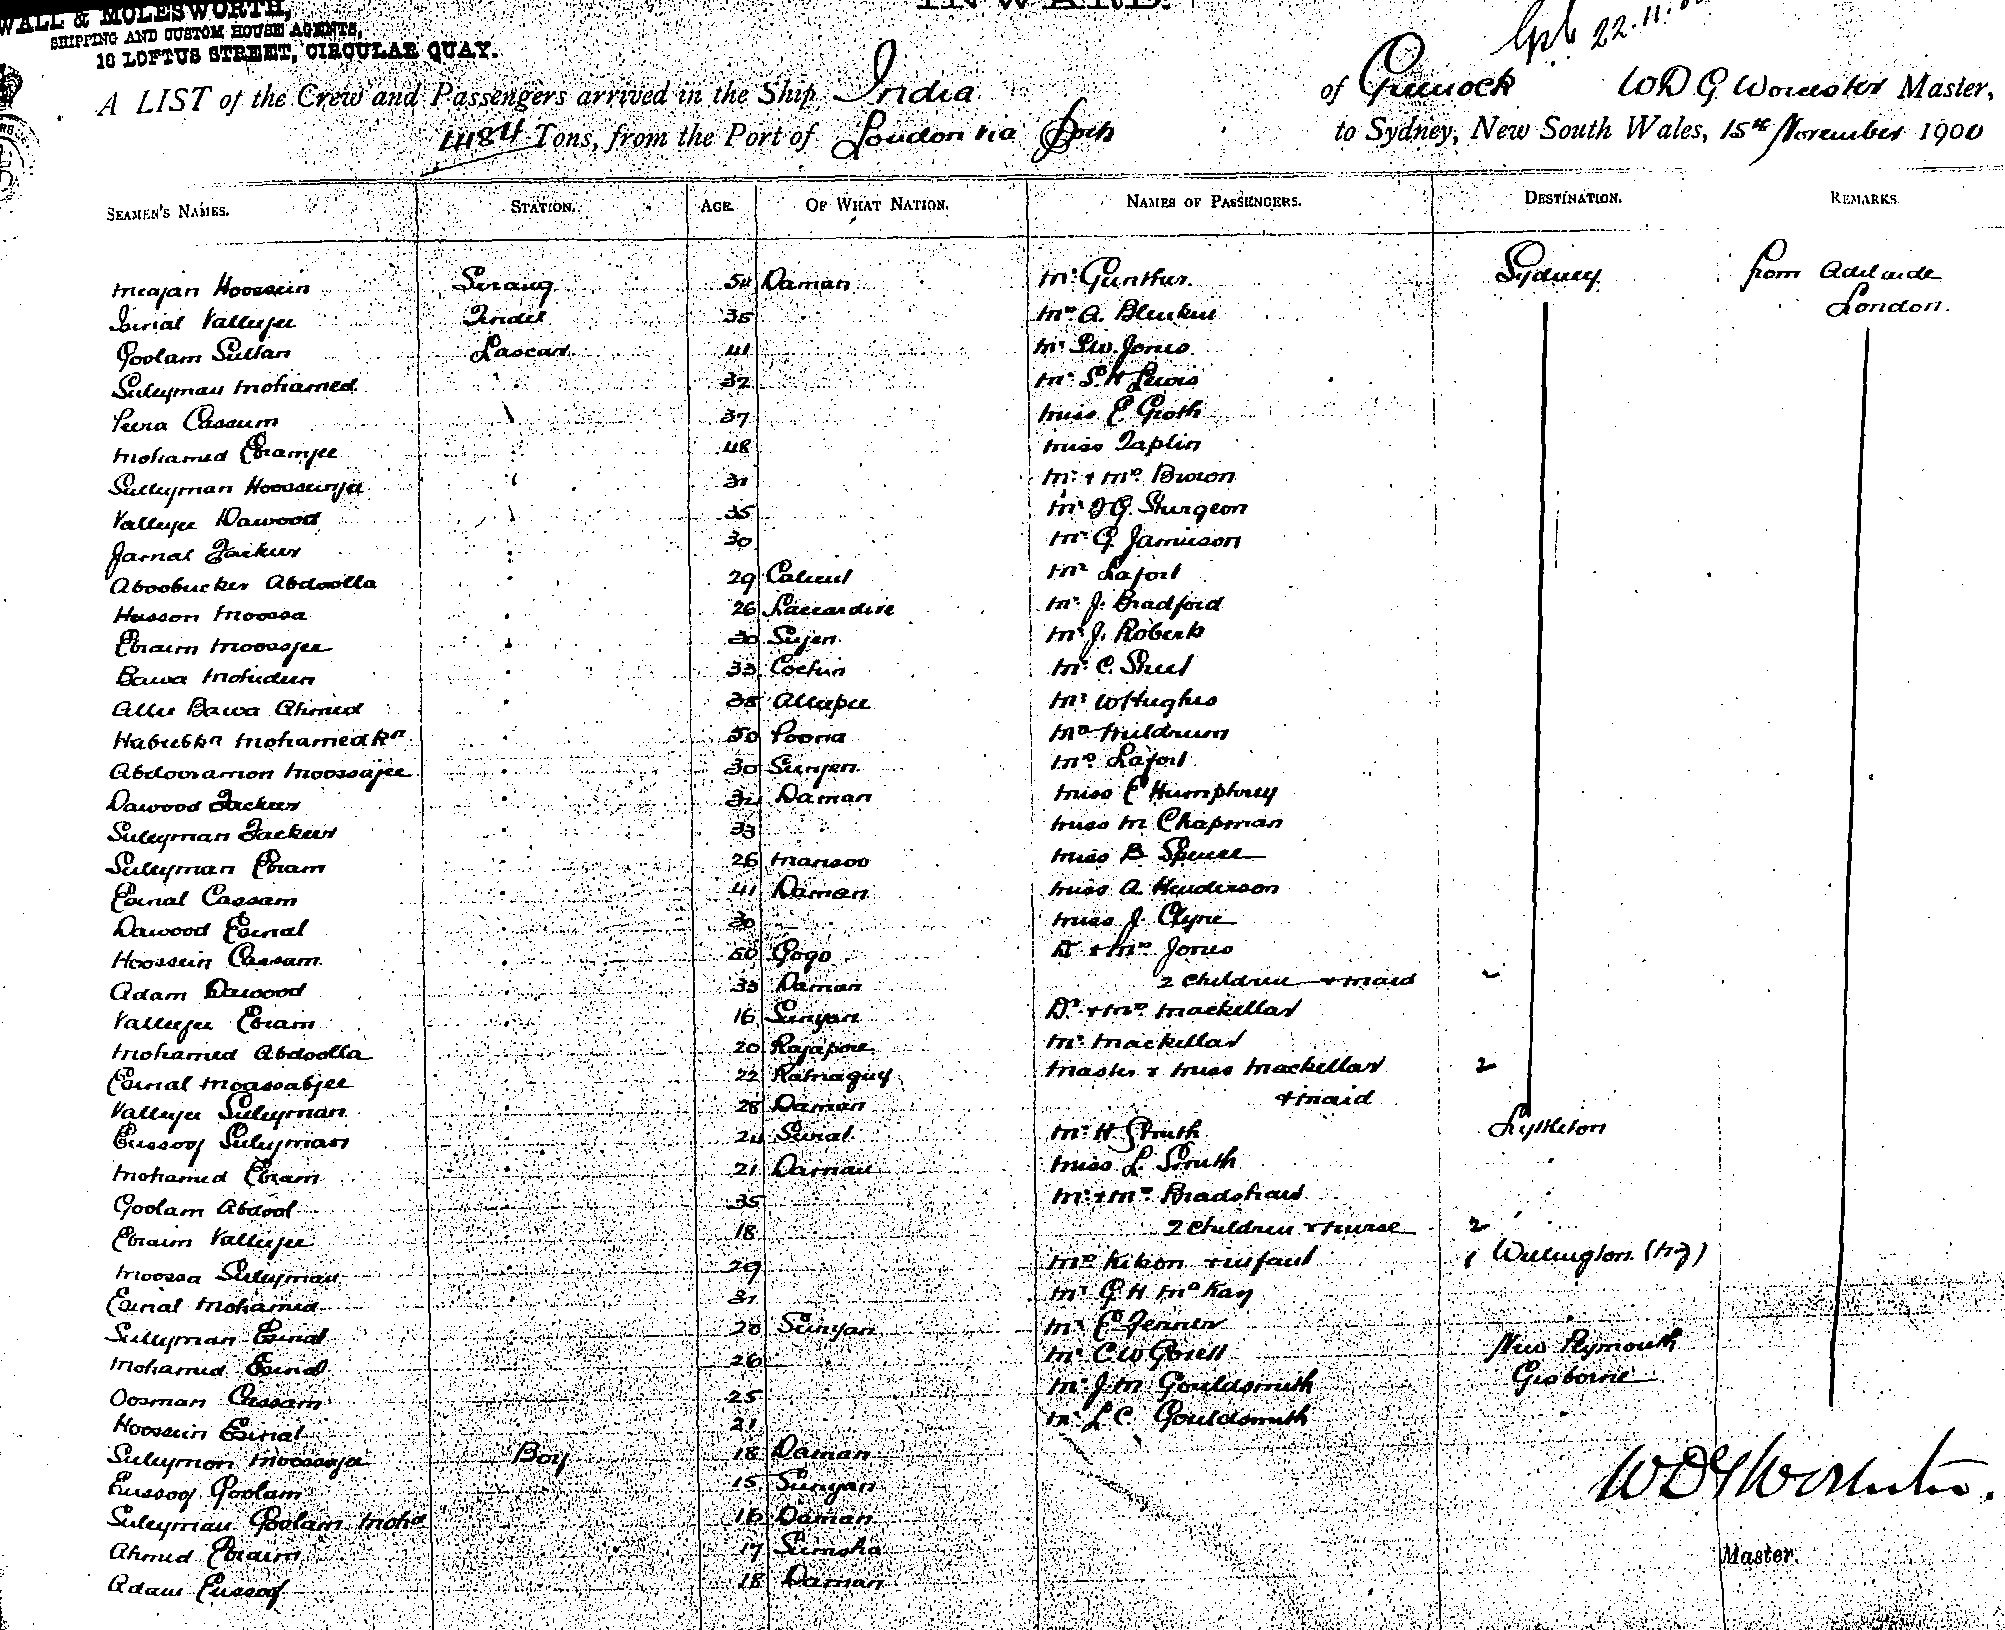 WALL & MOLESWORTH,
SHIPPING AND CUSTOM HOUSE AGENTS,
10 LOFTUS STREET, CIRCULAR QUAY.
INWARD.
22.11.
A LIST of the Crew and Passengers arrived in the Ship India of Greenock WDG Worcester Master,
Tons, from the Port of London via to Sydney, New South Wales, 15th November 1900
SEAMEN'S NAMES. STATION. AGE. OF WHAT NATION. NAMES OF PASSENGERS. DESTINATION. REMARKS.
Meajan Hoossein Serang 54 Daman Mr Gunther Sydney from Adelaide
Esinal Valleyjee Tindel 35 Mrs A. Blenkin London.
Goolam Sultan Lascar 41 Mr Jones
Suleyman Mohamed 32 Mr S.H Lewis
Peera Cassum 37 Miss E Groth
Mohamed Ebramjee 48 Miss Taplin
Suleyman Hoosseinjee 31 Mr & Mrs Brown
Valleyjee Dawood 35 Mr Sturgeon
Jamal Fackeer 30 Mr G. Jamieson
Aboobucker Abdoolla 29 Calicut Mr Lafort
Hasson Moossa 26 Laccardive Mr J. Bradford
Ebraim Moossjee 30 Sujen Mr J. Roberts
Bawa Mohideen 33 Cochin Mr C. Sheel
Allie Bawa Ahmed 38 Allapee Mr W Hughes
Mohamedkn 50 Poona Mrs Meldrum
Abdooramon Moossajee 30 Sunjen Mrs Lafort
Dawood Fackeer 32 Daman Miss E Humphrey
Suleyman Fackeer 33 Miss M Chapman
Suleyman Ebram 26 Mansoo Miss B Spence
Esinal Cassam 41 Daman Miss A. Henderson
Dawood Esinal 30 Miss J. Clyne
Hoossein Cassam 50 Gogo Dr & Mrs Jones
Adam Dawood 33 Daman 2 Children & maid
Valleyjee Ebram 16 Sunyan Dr & Mrs Mackellar
Mohamed Abdoolla 20 Rajapore Mr Mackellar
Esinal Moossabjee 22 Ratnaguy Master & Miss Mackellar 2
Valleyjee Suleyman 28 Daman & maid
Eussoof Suleyman 24 Surat Mr H Smith Lyttleton
Mohamed Ebram 21 Daman Miss L. Smith
Goolam Abdool 35 Mr & Mrs Bradshaw
Ebraim Valleyjee 18 2 Children & nurse 2
Moossa Suleyman 29 Mrs & infant 1 Wellington (NZ)
Esinal Mohamed 31 Mr G H McKay
Suleyman Esinal 20 Sunyan Mr E Jenner
Mohamed Esinal 26 Mr C W Gorell New Plymouth
Oosman Cassam 25 Mr J M Gouldsmith Gisborne
Hoossein Esinal 21 Mr L C. Gouldsmith
Suleyman Moossajee Boy 18 Daman
Eussoof Goolam 15 Sunyan
Suleyman Goolam Mohd 16 Daman
WDG Worcester.
Ahmed Ebraim 17 Sumsha Master.
Adam Eussoof 18 Daman